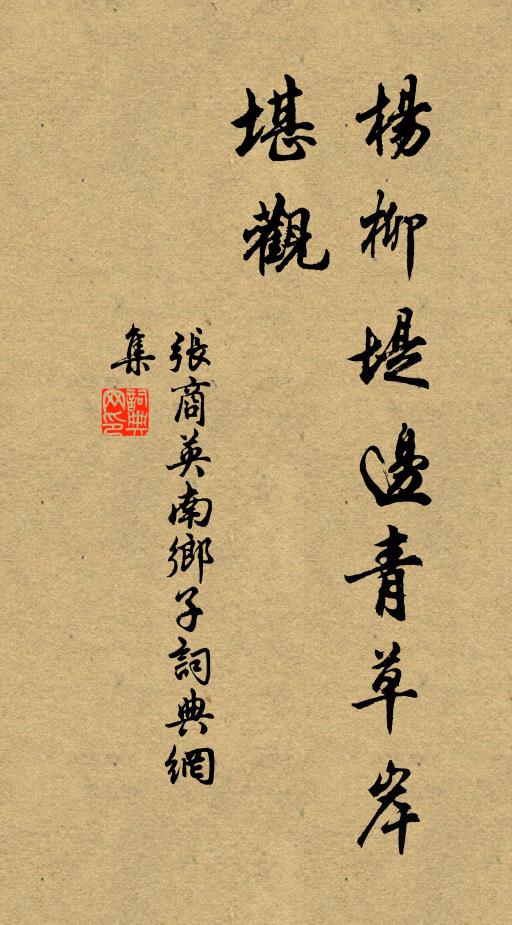 楊柳堤邊青草岸
堪觀
張商英南鄉子詞典網
集
詞典網印